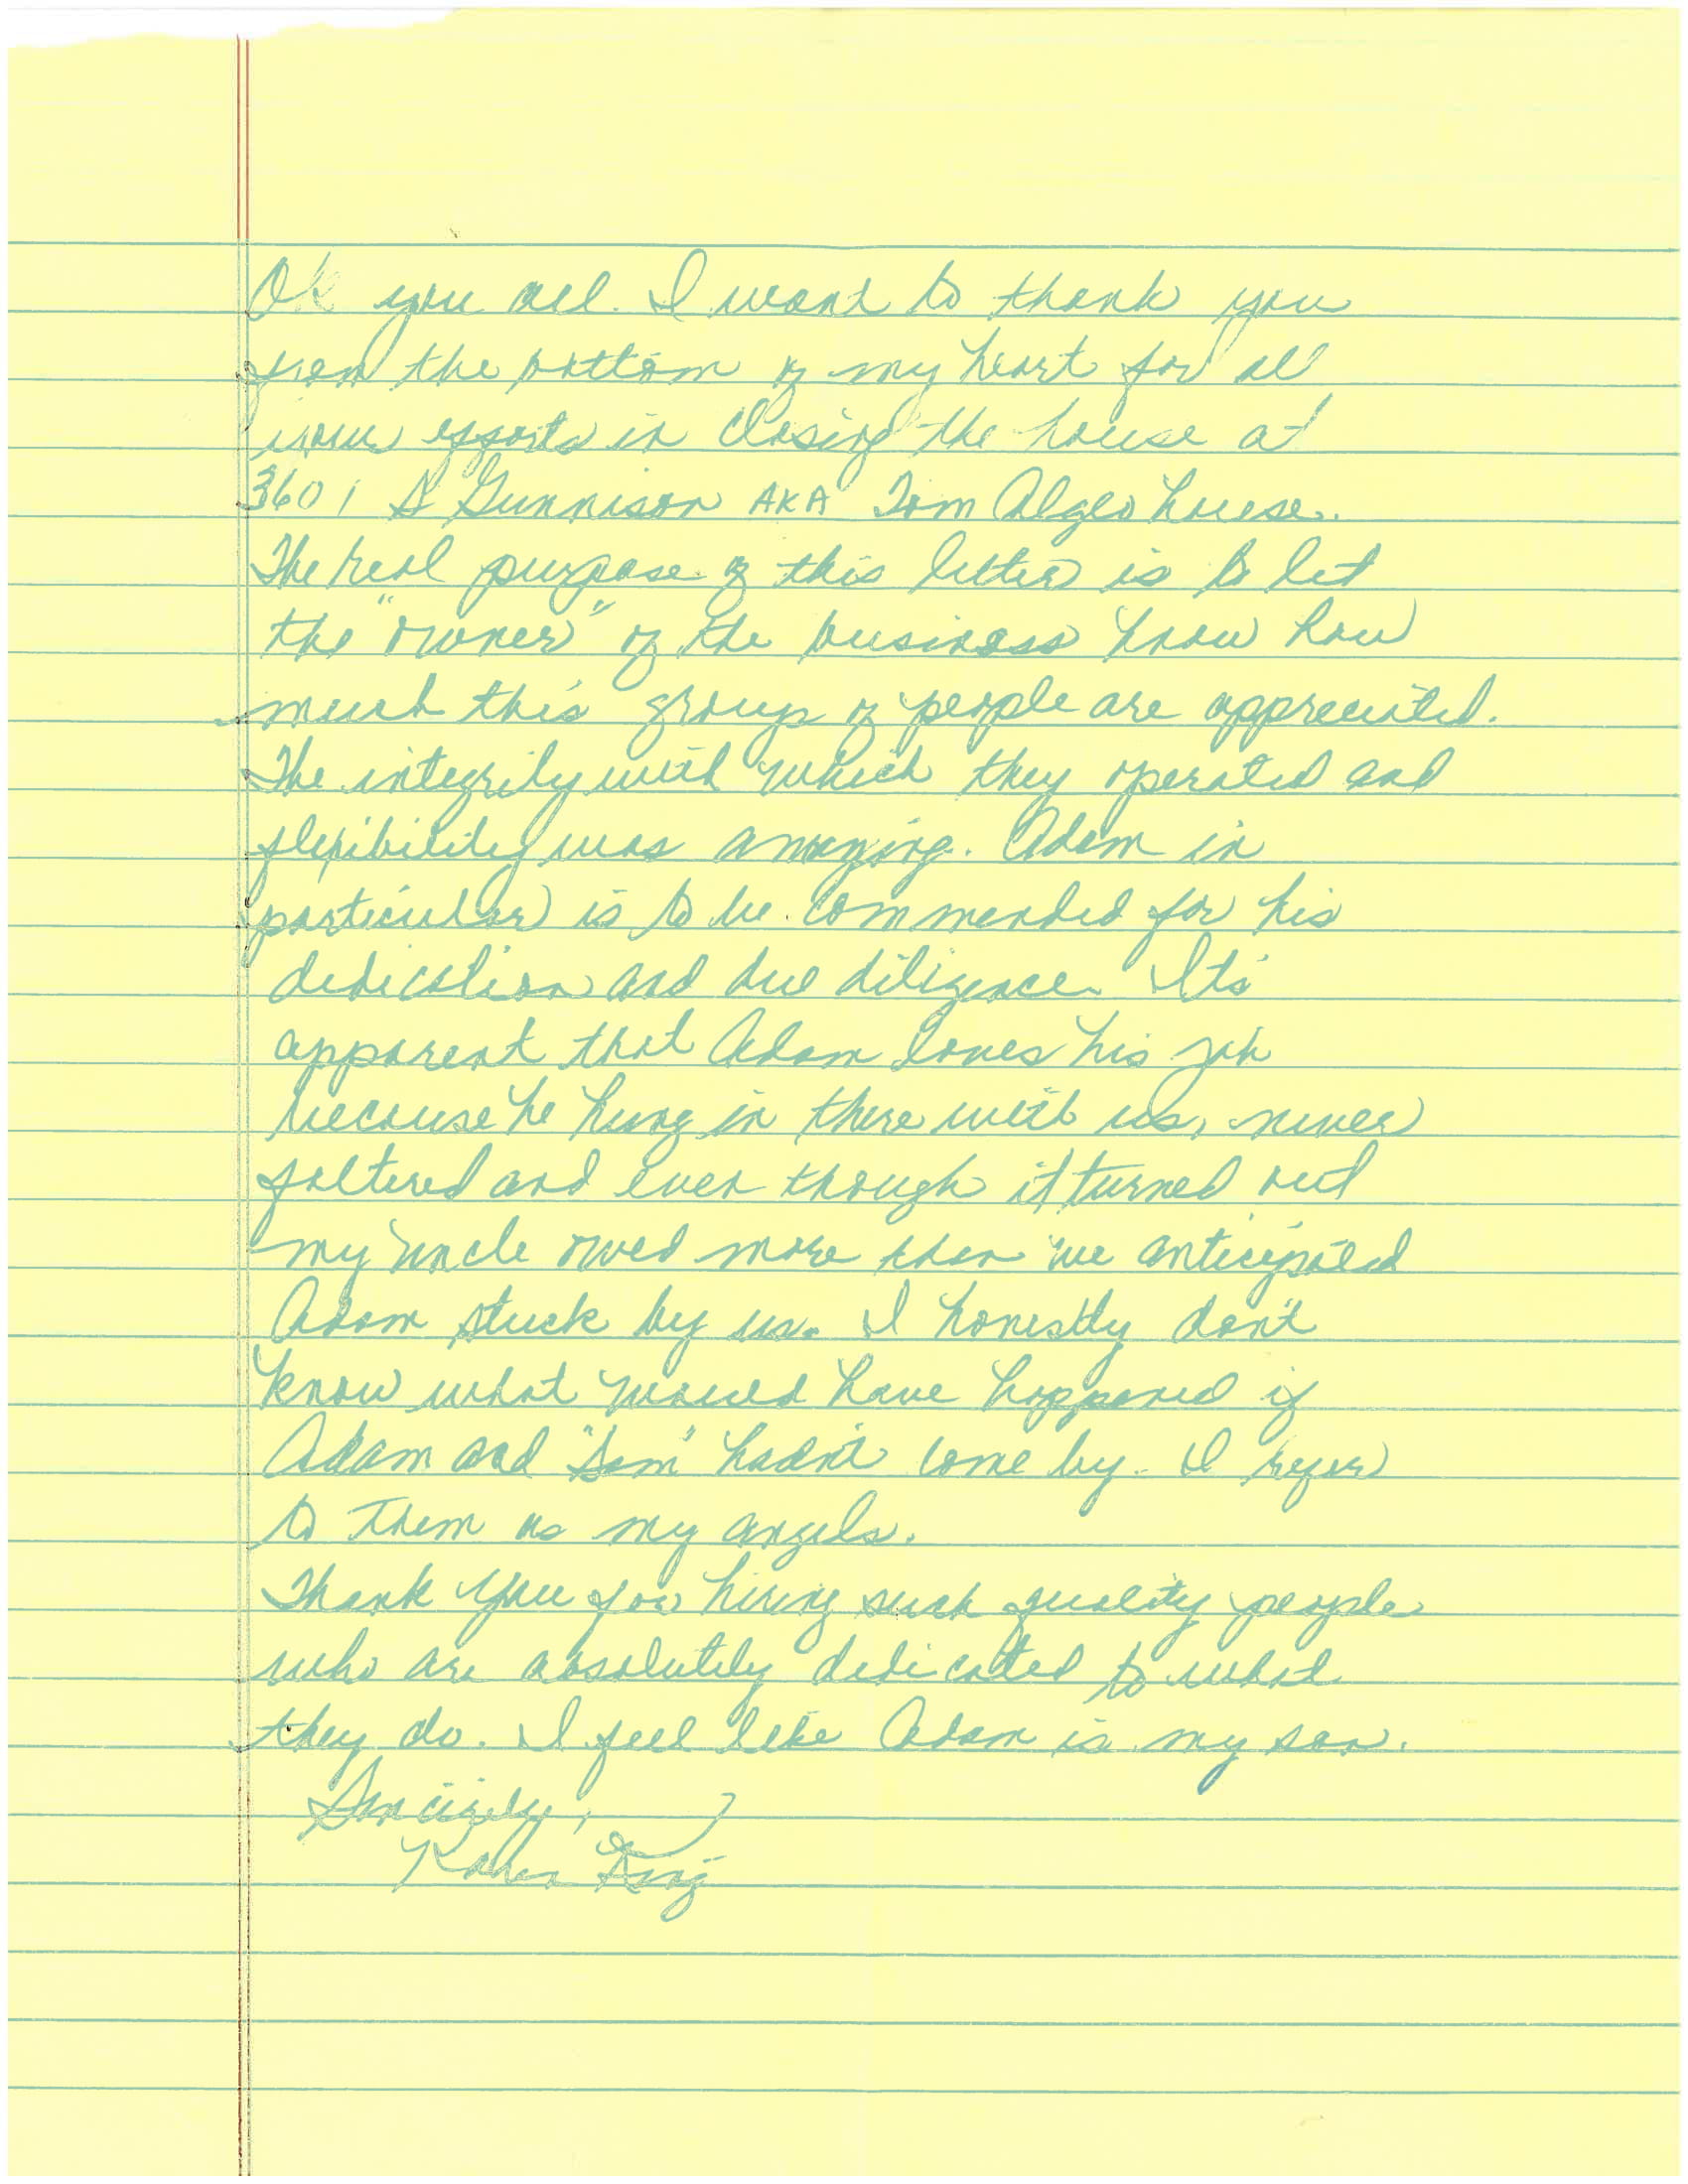 Ok you all. I want to thank you
from the bottom of my heart for all
your efforts in closing the house at
3601 S Gunnison AKA Tom Algeo house.
The real purpose of this letter is to let
the "owner" of the business know how
much this group of people are appreciated.
The integrity with which they operated and
flexibility was amazing. Adam in
particular is to be commended for his
dedication and due diligence. It's
apparent that Adam loves his job
because he hung in there with us, never
faltered and even though it turned out
my uncle owed more than we anticipated
Adam stuck by us. I honestly don't
know what would have happened if
Adam and "Sam" hadn't come by. I refer
to them as my angels.
Thank you for hiring such quality people
who are absolutely dedicated to what
they do. I feel like Adam is my son.
Sincerely,
Karen